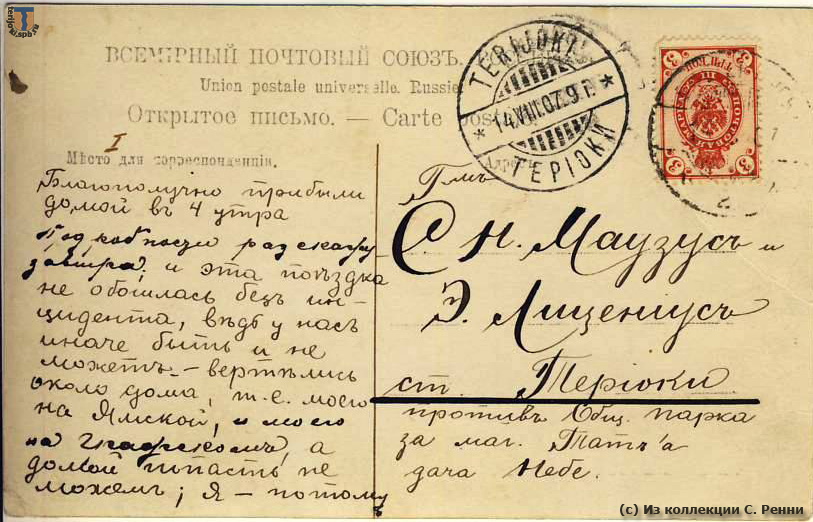 ВСЕМІРНЫЙ ПОЧТОВЫЙ СОЮЗЪ.
Union postale universelle. Russie
Открытое письмо. — Carte postale
TERIJOKI
14.VIII.07.9.
ТЕРІОКИ
I
Мѣсто для корреспонденціи.
Благополучно прибыли
домой въ 4 утра
Подробности разскажу
завтра, и эта поѣздка
не обошлась безъ ин-
цидента, вѣдь у насъ
иначе быть и не
можетъ – вертѣлись
около дома, т.е. моего
на Ямской, и моего
на
а
домой попасть не
можемъ; я – потому
Гмъ
С. Н. Маузусъ и
Э. Лиценіусъ
ст. Теріоки
противъ Общ. парка
за маг. Татъ'а
дача Небе.
(с) Из коллекции С. Ренни
terijoki.spb.ru